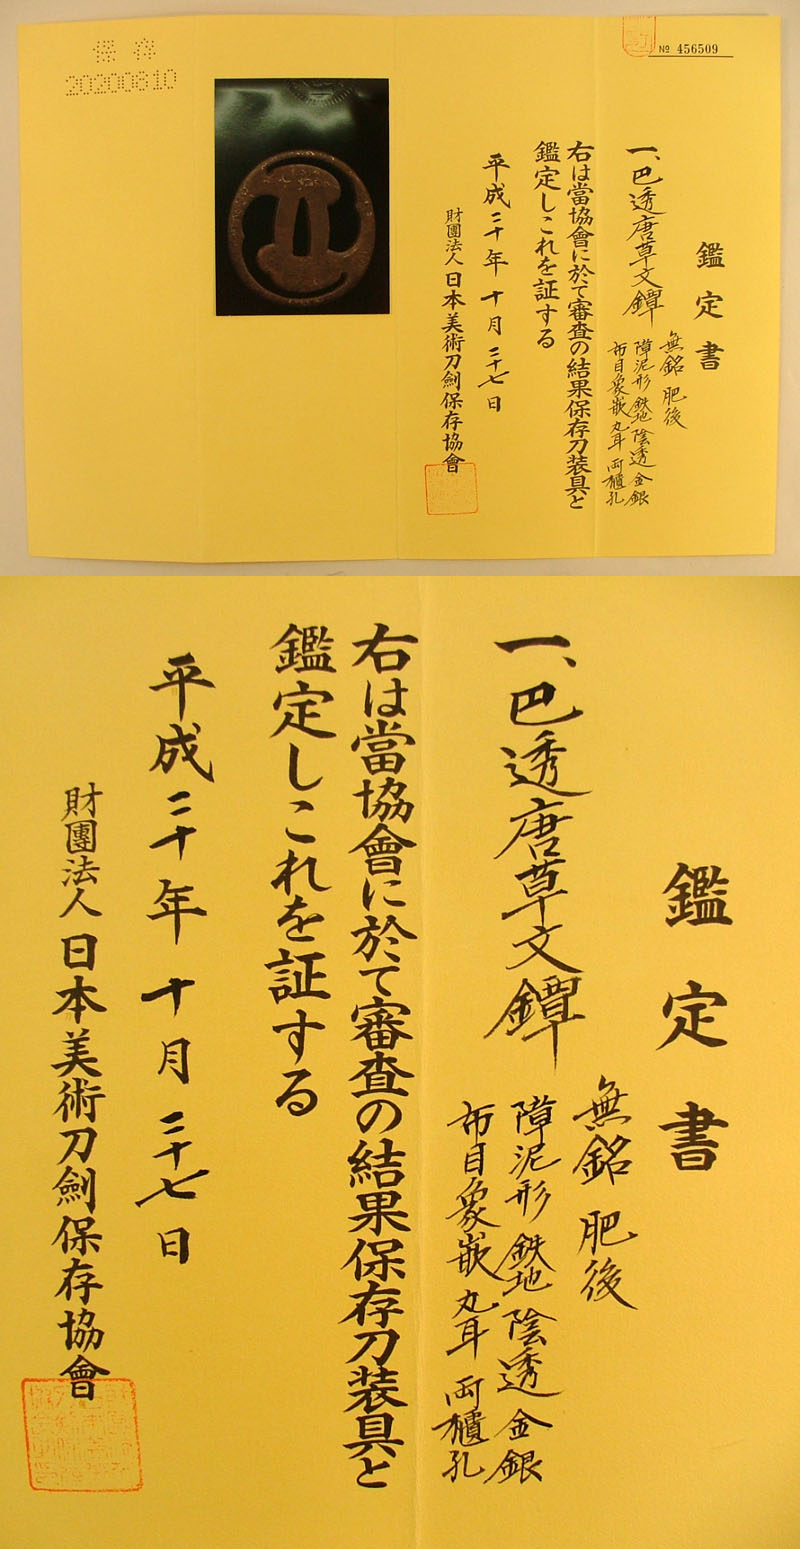 № 456509
鑑定書
一、巴透唐草文鐔
無銘 肥後
障泥形 鉄地 陰透 金銀
布目象嵌 丸耳 両櫃孔
右は當協會に於て審査の結果保存刀装具と
鑑定しこれを証する
平成二十年十月二十七日
財團法人日本美術刀劍保存協會
保存
20200810
鑑定書
無銘 肥後
一、巴透唐草文鐔
障泥形 鉄地 陰透 金銀
布目象嵌 丸耳 両櫃孔
右は當協會に於て審査の結果保存刀装具と
鑑定しこれを証する
平成二十年十月二十七日
財團法人日本美術刀劍保存協會